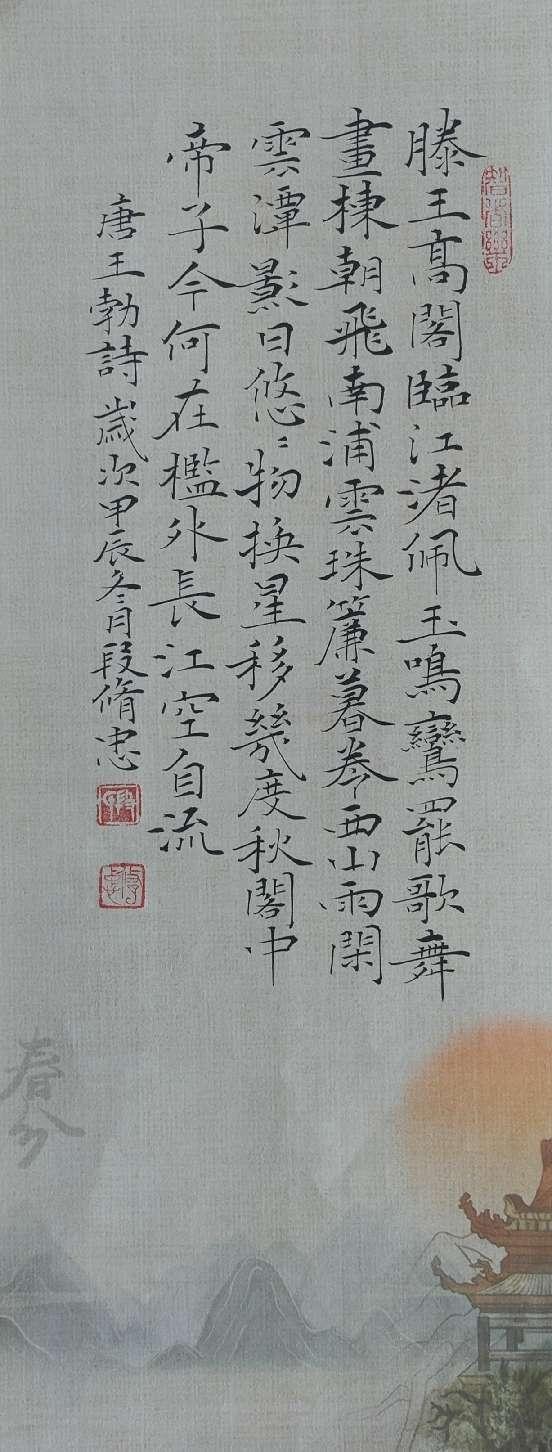 滕王高閣臨江渚佩玉鳴鸞罷歌舞
畫棟朝飛南浦雲珠簾暮卷西山雨閑
雲潭影日悠〻物换星移幾度秋閣中
帝子今何在檻外長江空自流
唐王勃詩歲次甲辰冬月段脩忠
春分